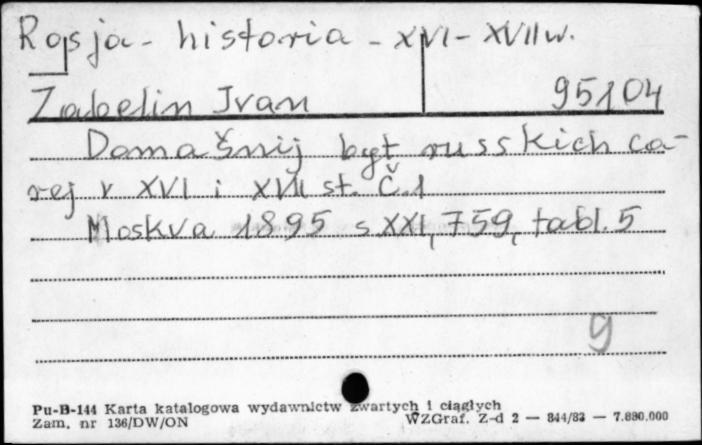 Rosja - historia - XVI - XVII w.
Zabelin Ivan 95104
Domašnij byt russkich ca-
rej v XVI i XVII st. Č.1
Moskva 1895 s.XXI, 759, tabl. 5
9
Pu-B-144 Karta katalogowa wydawnictw zwartych i ciągłych
Zam. nr 136/DW/ON WZGraf. Z-d 2 — 844/83 — 7.880.000